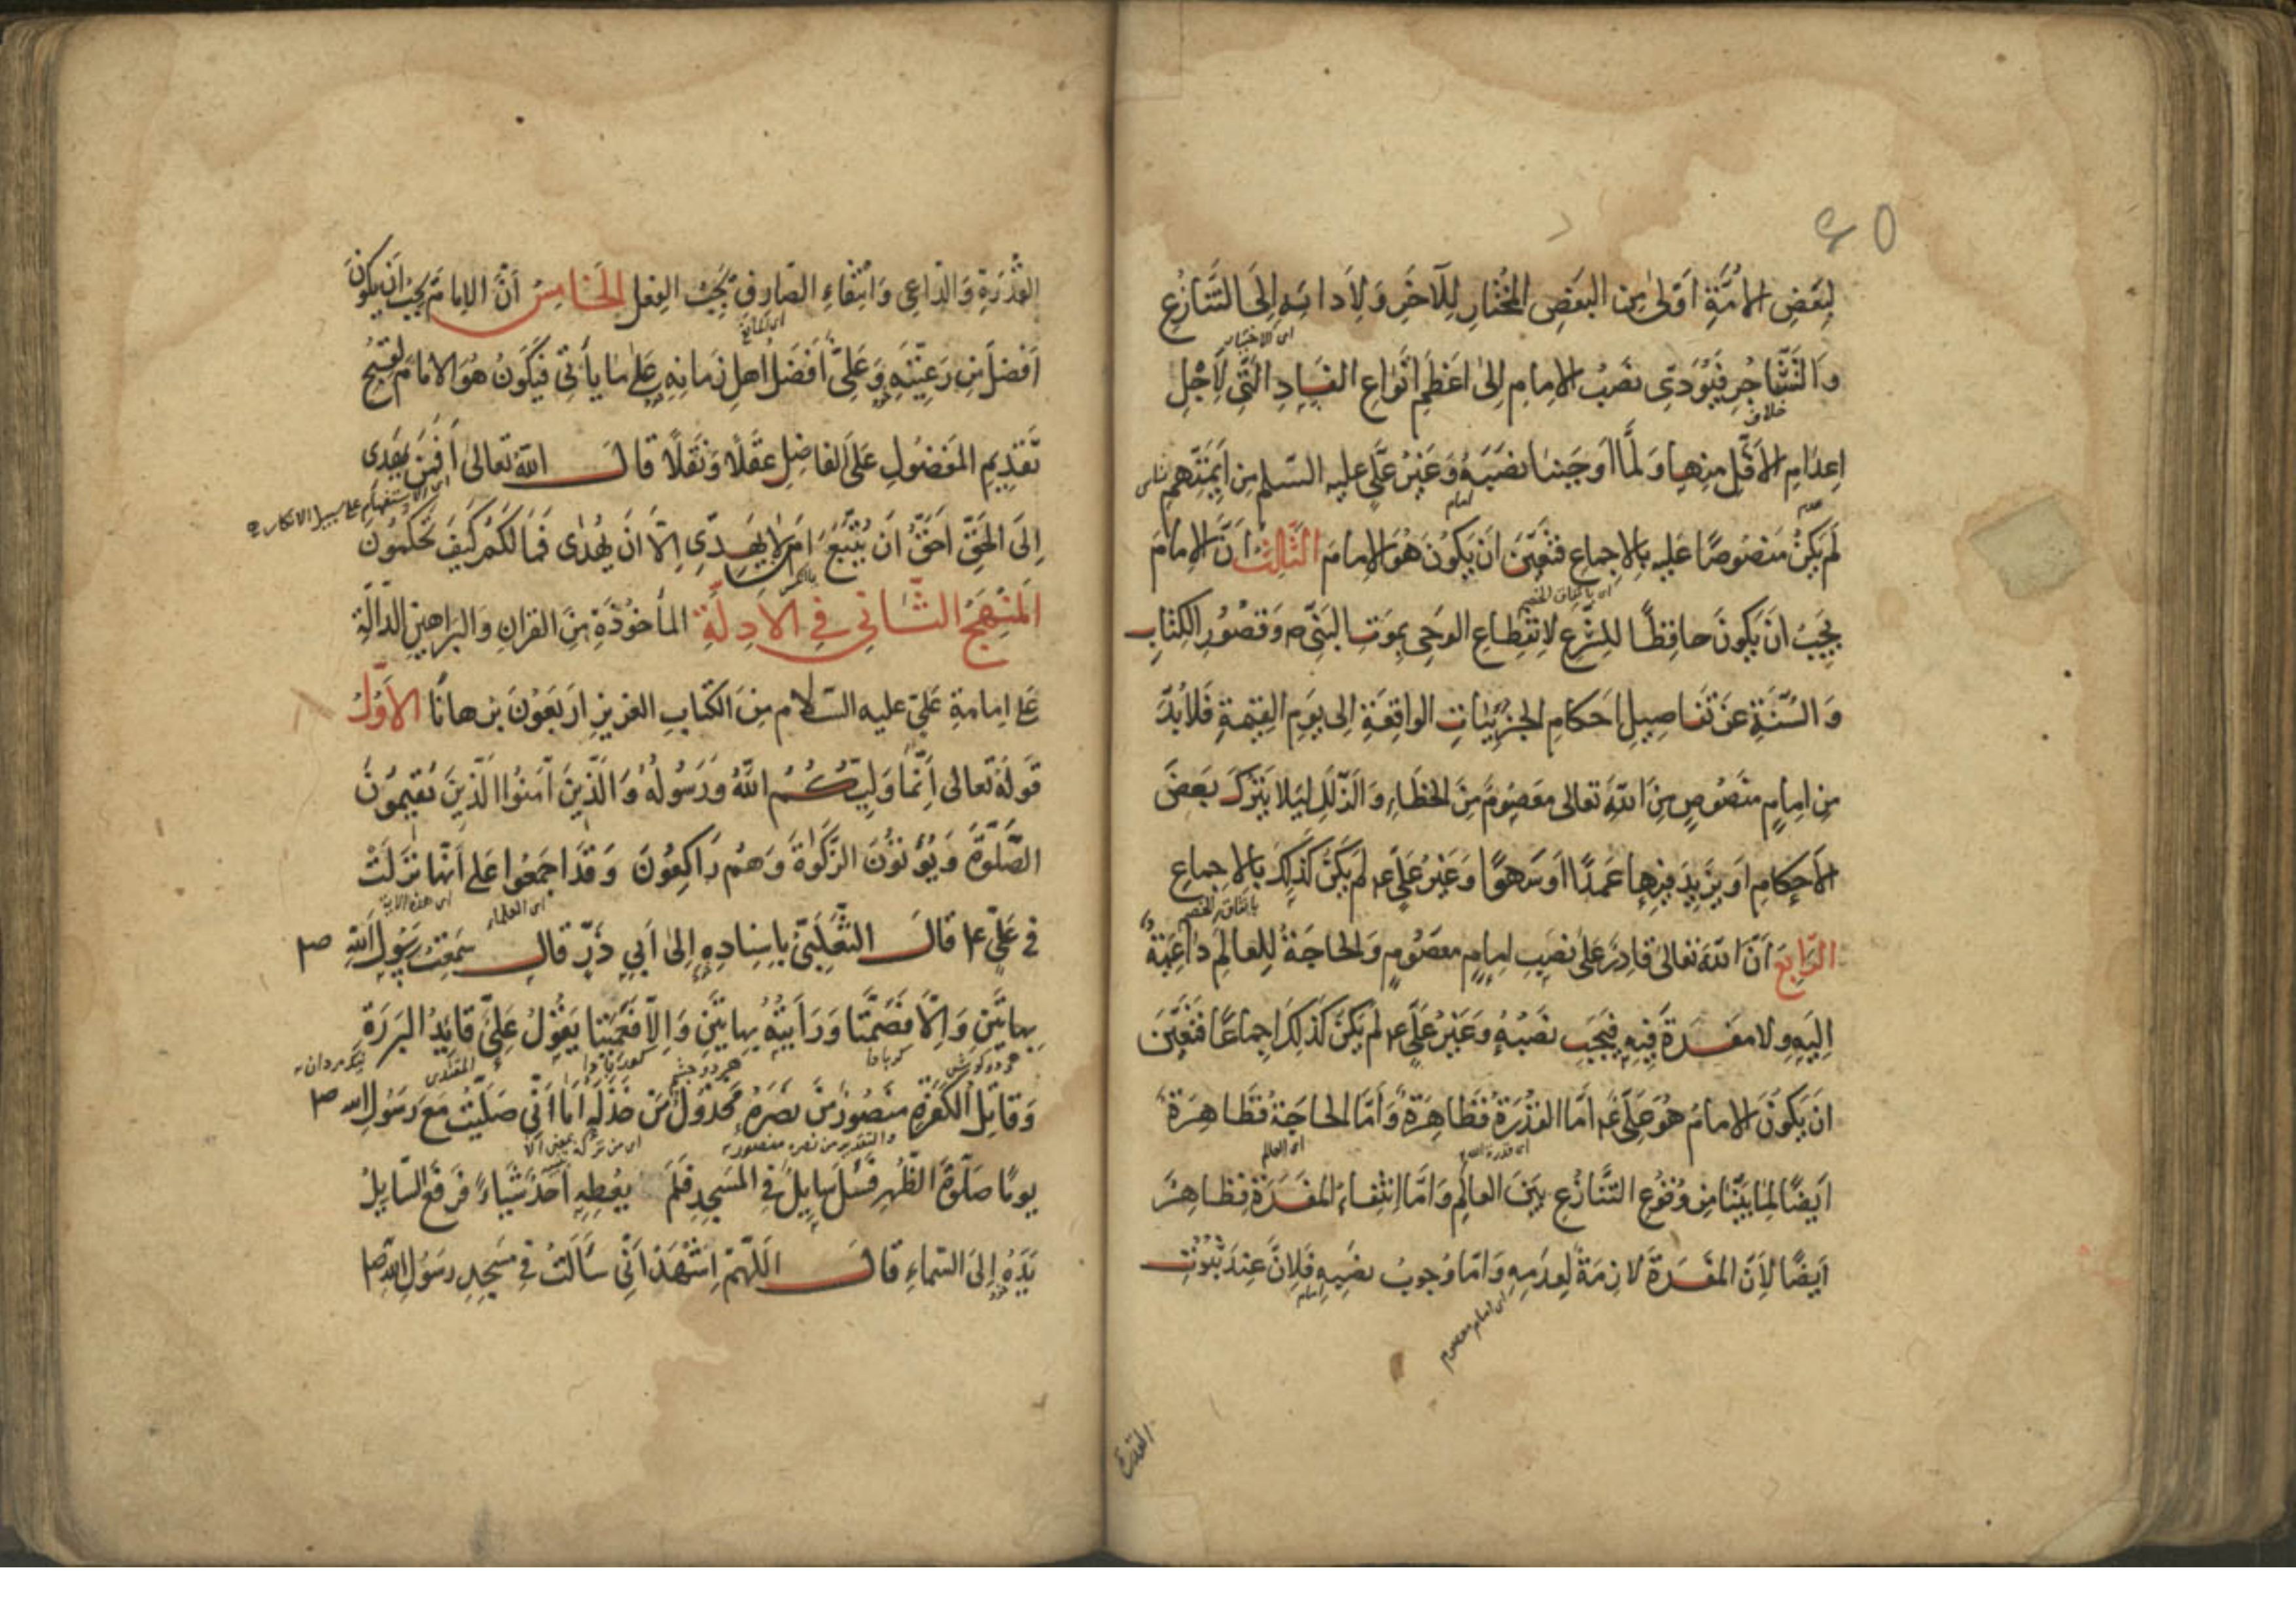 لِبَعْضِ الأُمَّةِ اَوْلىٰ مِنَ البَعْضِ المُخْتارِ لِلآخَرِ وَلِأَدائِهِ اِلَى التَّنازُعِ
اى الاختيار
وَالتَّشاجُرِ فَيُؤَدِّى نَصْبُ الإمامِ اِلىٰ اَعْظَمِ اَنْواعِ الفَسادِ الَّتِى لِأَجْلِ
خلاف
اِعْدامِ الأَقَلِّ مِنْها وَلَمَّا اَوْجَبْنا نَصْبَهُ وَغَيْرُ عَلِيٍّ عليه السّلم مِنْ اَئِمَّتِهِمْ
امام
لَمْ يَكُنْ مَنْصُوصًا عَلَيْهِ بِالإجماعِ فَتَعَيَّنَ اَنْ يَكُونَ هُوَ الإمامَ الثَّالِثُ اَنَّ الإمامَ
اى باتفاق الخصم
يَجِبُ اَنْ يَكُونَ حافِظًا لِلشَّرْعِ لاِنْقِطاعِ الوَحْىِ بِمَوْتِ النَّبِىِّ ص وَقُصُورِ الكِتابِ
وَالسُّنَّةِ عَنْ تَفاصِيلِ اَحْكامِ الجُزْئِيّاتِ الواقِعَةِ اِلى يَوْمِ القِيٰمَةِ فَلا بُدَّ
مِنْ اِمامٍ مَنْصُوصٍ مِنَ اللّهِ تَعالى مَعْصُومٍ مِنَ الخَطَاءِ وَالزَّلَلِ لِيَلا يَتْرُكَ بَعْضَ
الأَحْكامِ اَوْ يَزِيدَ فِيها عَمْدًا اَوْ سَهْوًا وَغَيْرُ عَلِيٍّ ع لَمْ يَكُنْ كَذٰلِكَ بِالإجماعِ
باتفاق الخصم
الرّابِعُ اَنَّ اللّهَ تَعالى قادِرٌ عَلىٰ نَصْبِ اِمامٍ مَعْصُومٍ وَالحاجَةُ لِلعالَمِ داعِيَةٌ
اِلَيْهِ وَلا مَفْسَدَةَ فِيهِ فَيَجِبُ نَصْبُهُ وَغَيْرُ عَلِيٍّ ع لَمْ يَكُنْ كَذٰلِكَ اِجماعًا فَتَعَيَّنَ
اَنْ يَكُونَ الإمامُ هُوَ عَلِىٌّ ع اَمَّا القُدْرَةُ فَظاهِرَةٌ وَاَمَّا الحاجَةُ فَظاهِرَةٌ
اى قدرة الله
اى العالم
اَيْضًا لِما بَيَّنّا مِنْ وُقُوعِ التَّنازُعِ بَيْنَ العالَمِ وَاَمَّا اِنْتِفاءُ المَفْسَدَةِ فَظاهِرٌ
اَيْضًا لِأَنَّ المَفْسَدَةَ لازِمَةٌ لِعَدَمِهِ وَاَمَّا وُجوبُ نَصْبِهِ فَلِأَنَّ عِنْدَ ثُبُوتِ
امام
اى امام معصوم
القدرة
القُدْرَةِ وَالدّاعِى وَانْتِفاءِ الصّارِفِ يَجِبُ الفِعْلُ الخامِسُ اَنَّ الإمامَ يَجِبُ اَنْ يَكُونَ
اَفْضَلَ مِنْ رَعِيَّتِهِ وَعَلِىٌّ اَفْضَلُ اَهْلِ زَمانِهِ عَلىٰ ما يَأْتِى فَيَكُونُ هُوَ الإمامَ لِقُبْحِ
تَقْدِيمِ المَفْضُولِ عَلَى الفاضِلِ عَقْلًا وَنَقْلًا قالَ اللّهُ تَعالى اَفَمَنْ يَهْدِى
اى الاستفهام على سبيل الانكار
اِلَى الحَقِّ اَحَقُّ اَنْ يُتَّبَعَ اَمَّنْ لا يَهِدِّى اِلّا اَنْ يُهْدٰى فَمَا لَكُمْ كَيْفَ تَحْكُمُونَ
اَلمَنْهَجُ الثّانِى فِى الأَدِلَّةِ المَأْخُوذَةِ مِنَ القُرْانِ وَالبَراهِينِ الدّالَّةِ
عَلى اِمامَةِ عَلِىٍّ عليه السّلام مِنَ الكِتابِ العَزِيزِ اَرْبَعُونَ بُرْهانًا الأَوَّلُ
قَوْلُهُ تَعالى اِنَّما وَلِيُّكُمُ اللّهُ وَرَسُولُهُ وَالَّذِينَ آمَنُوا الَّذِينَ يُقِيمُونَ
الصَّلٰوةَ وَيُؤْتُونَ الزَّكٰوةَ وَهُمْ رَاكِعُونَ وَقَدْ اَجْمَعُوا عَلى اَنَّها نَزَلَتْ
اى العلماء
اى هذه الاية
فى عَلِىٍّ ع قالَ الثَّعْلَبِىُّ بِاِسْنادِهِ اِلىٰ اَبِى ذَرٍّ قالَ سَمِعْتُ رَسُولَ اللّهِ ص
بِهاتَيْنِ وَاِلّا فَصَمَّتا وَرَأَيْتُهُ بِهاتَيْنِ وَاِلّا فَعَمِيَتا يَقُولُ عَلِىٌّ قائِدُ البَرَرَةِ
هر دو كوش
كر باد
هر دو چشم
المقتدى
نيك مردان
وَقاتِلُ الكَفَرَةِ مَنْصُورٌ مَنْ نَصَرَهُ مَخْذُولٌ مَنْ خَذَلَهُ اَمَا اِنِّى صَلَّيْتُ مَعَ رَسُولِ الله ص
والتقدير من نصره منصور
يَومًا صَلٰوةَ الظُّهْرِ فَسَئَلَ سائِلٌ فِى المَسْجِدِ فَلَمْ يُعْطِهِ اَحَدٌ شَيْاءً فَرَفَعَ السّايِلُ
يَدَهُ اِلَى السَّماءِ قالَ اَللّهُمَّ اِشْهَدْ اَنِّى سَأَلْتُ فِى مَسْجِدِ رَسُولِ اللّهِ ص